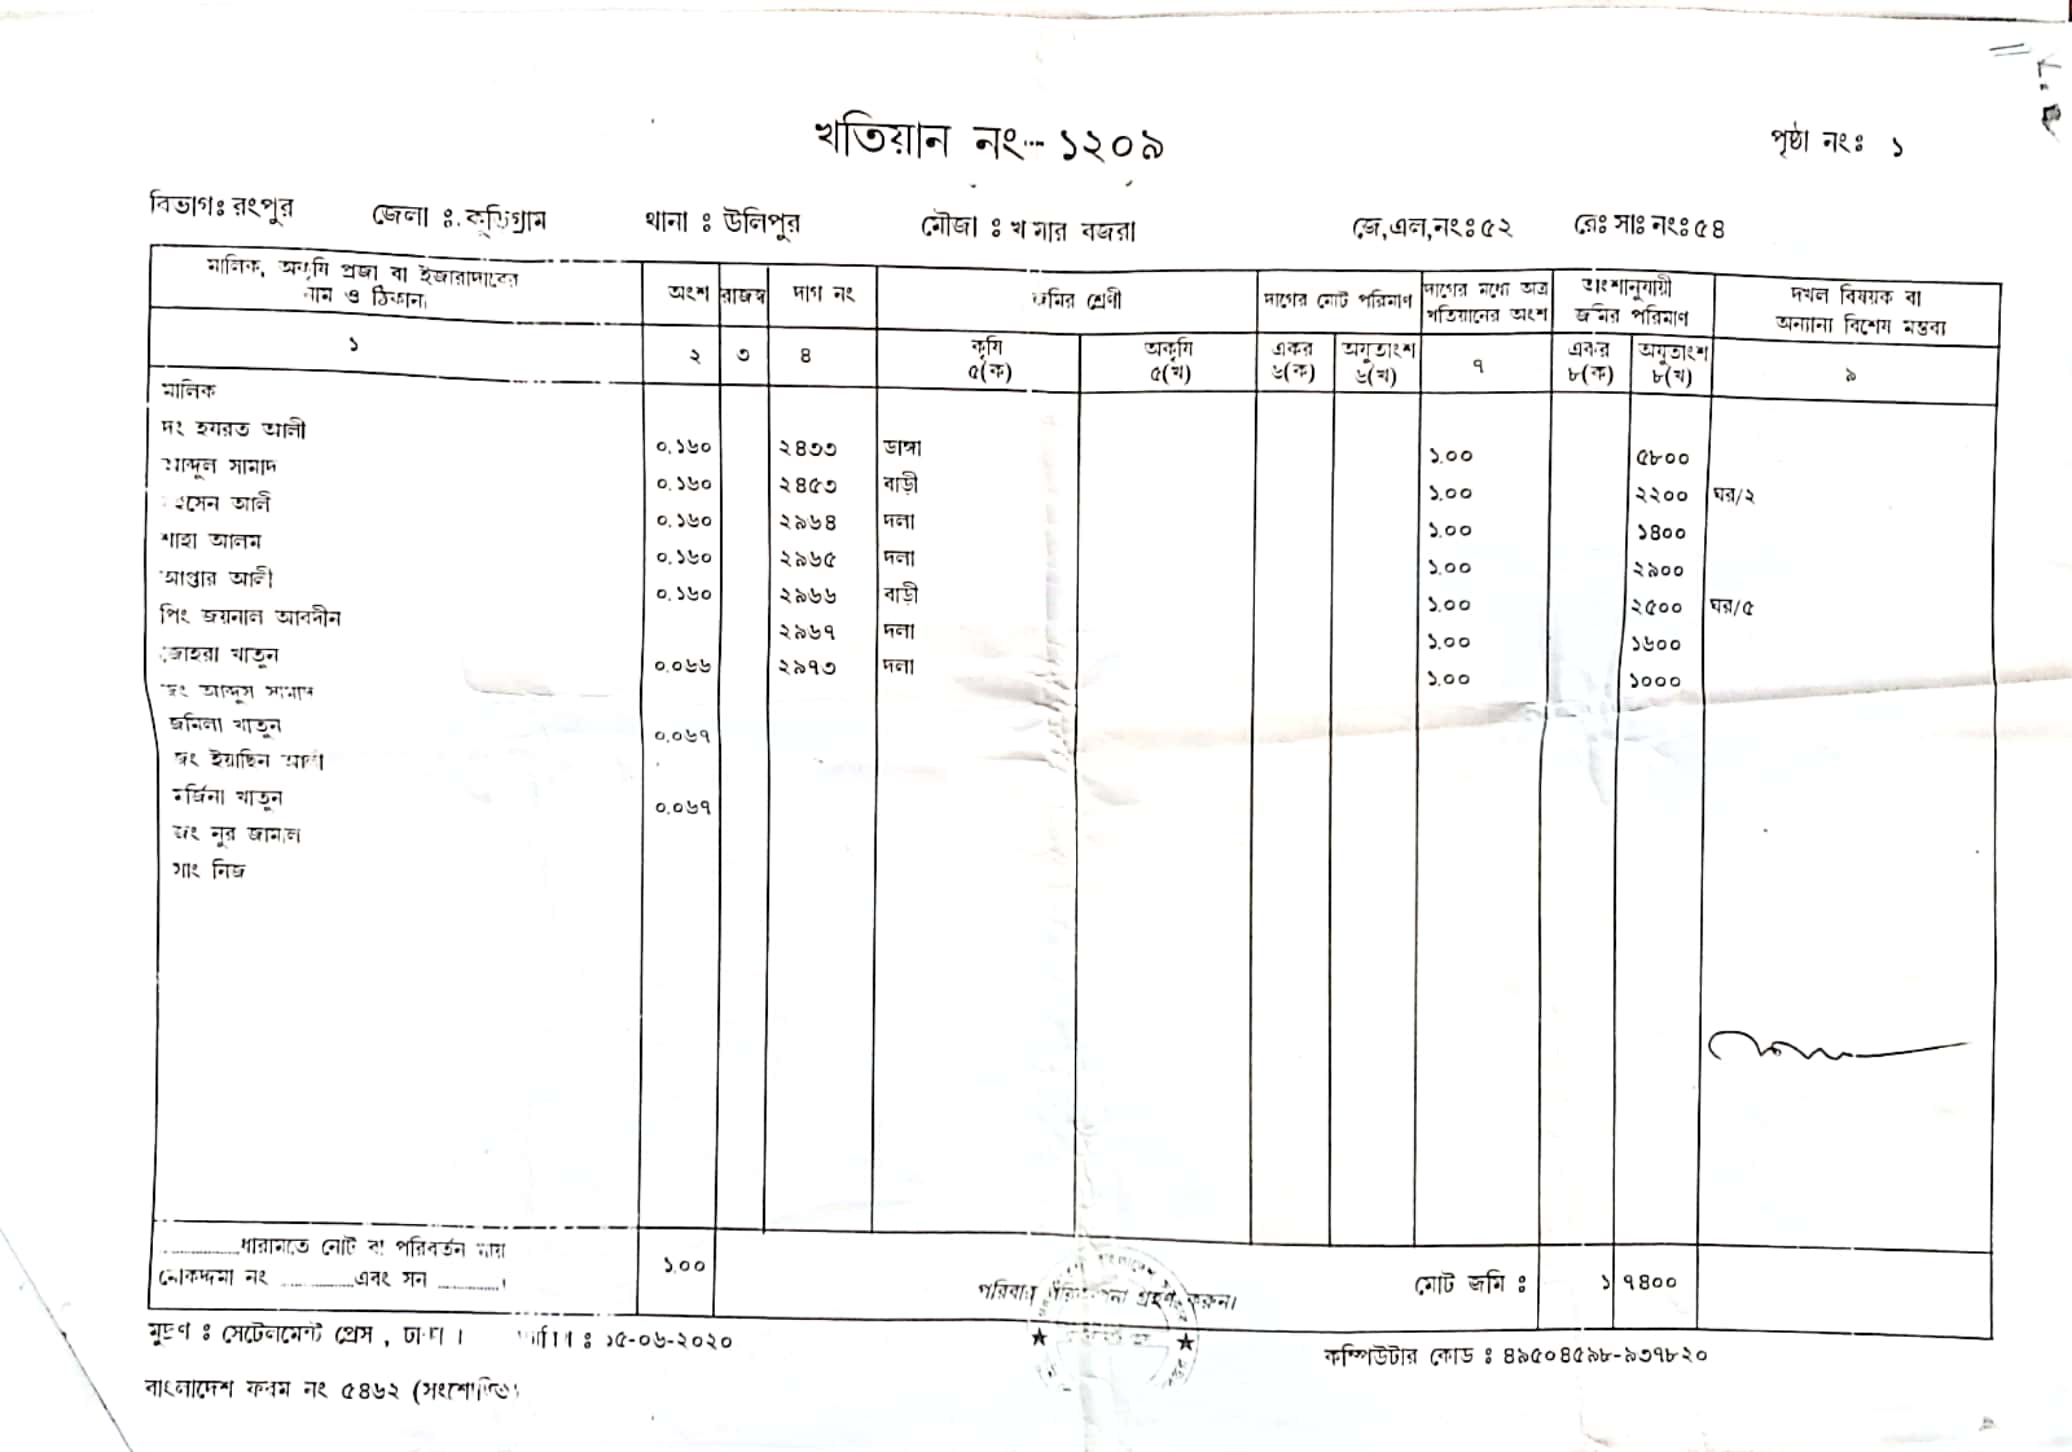 খতিয়ান নং--- ১২০৯
পৃষ্ঠা নংঃ ১
বিভাগঃ রংপুর জেলা ঃ. কুড়িগ্রাম থানা ঃ উলিপুর মৌজা ঃ খামার বজরা জে,এল,নংঃ ৫২ রেঃ সাঃ নংঃ ৫৪
মালিক, অকৃষি প্রজা বা ইজারাদারের নাম ও ঠিকানা অংশ রাজস্ব দাগ নং জমির শ্রেণী দাগের মোট পরিমাণ দাগের মধ্যে অত্র খতিয়ানের অংশ অংশানুযায়ী জমির পরিমাণ দখল বিষয়ক বা অন্যান্য বিশেষ মন্তব্য
১ ২ ৩ ৪ কৃষি ৫(ক) অকৃষি ৫(খ) একর ৬(ক) অযুতাংশ ৬(খ) ৭ একর ৮(ক) অযুতাংশ ৮(খ) ৯
মালিক
মং হযরত আলী ০.১৬০ ২৪৩৩ ডাঙ্গা ১.০০ ৫৮০০
আব্দুল সামাদ ০.১৬০ ২৪৫৩ বাড়ী ১.০০ ২২০০ ঘর/২
আলী ০.১৬০ ২৯৬৪ দলা ১.০০ ১৪০০
শাহা আলম ০.১৬০ ২৯৬৫ দলা ১.০০ ২৯০০
আলী ০.১৬০ ২৯৬৬ বাড়ী ১.০০ ২৫০০ ঘর/৫
পিং জয়নাল আবদীন ২৯৬৭ দলা ১.০০ ১৬০০
জোহরা খাতুন ০.০৬৬ ২৯৭৩ দলা ১.০০ ১০০০
জং আব্দুস সামাদ
জমিলা খাতুন ০.০৬৭
জং ইয়াছিন আলী
মর্জিনা খাতুন ০.০৬৭
জং নুর জামাল
সাং নিজ
..............ধারামতে নোট বা পরিবর্তন মায়
মোকদ্দমা নং ..............এবং সন ............।
১.০০
পরিবার পরিকল্পনা গ্রহণ করুন।
মোট জমি ঃ ১ ৭৪০০
মুদ্রণ ঃ সেটেলমেন্ট প্রেস , ঢাকা । তারিখ ঃ ১৫-০৬-২০২০
কম্পিউটার কোড ঃ ৪৯৫০৪৫৯৮-৯৩৭৮২০
বাংলাদেশ ফরম নং ৫৪৬২ (সংশোধিত)